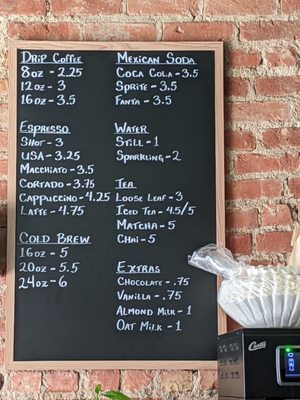 Drip Coffee
8oz - 2.25
12oz - 3
16oz - 3.5
Espresso
Shot - 3
USA - 3.25
Macchiato - 3.5
Cortado - 3.75
Cappuccino - 4.25
Latte - 4.75
Cold Brew
16oz - 5
20oz - 5.5
24oz - 6
Mexican Soda
Coca Cola - 3.5
Sprite - 3.5
Fanta - 3.5
Water
Still - 1
Sparkling - 2
Tea
Loose Leaf - 3
Iced Tea - 4.5/5
Matcha - 5
Chai - 5
Extras
Chocolate - .75
Vanilla - .75
Almond Milk - 1
Oat Milk - 1
Curtis